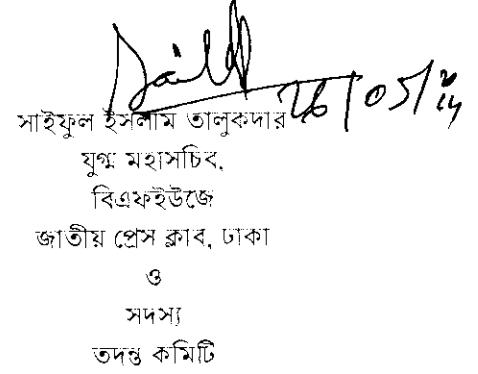 26/05/14
সাইফুল ইসলাম তালুকদার
যুগ্ম মহাসচিব,
বিএফইউজে
জাতীয় প্রেস ক্লাব, ঢাকা
ও
সদস্য
তদন্ত কমিটি